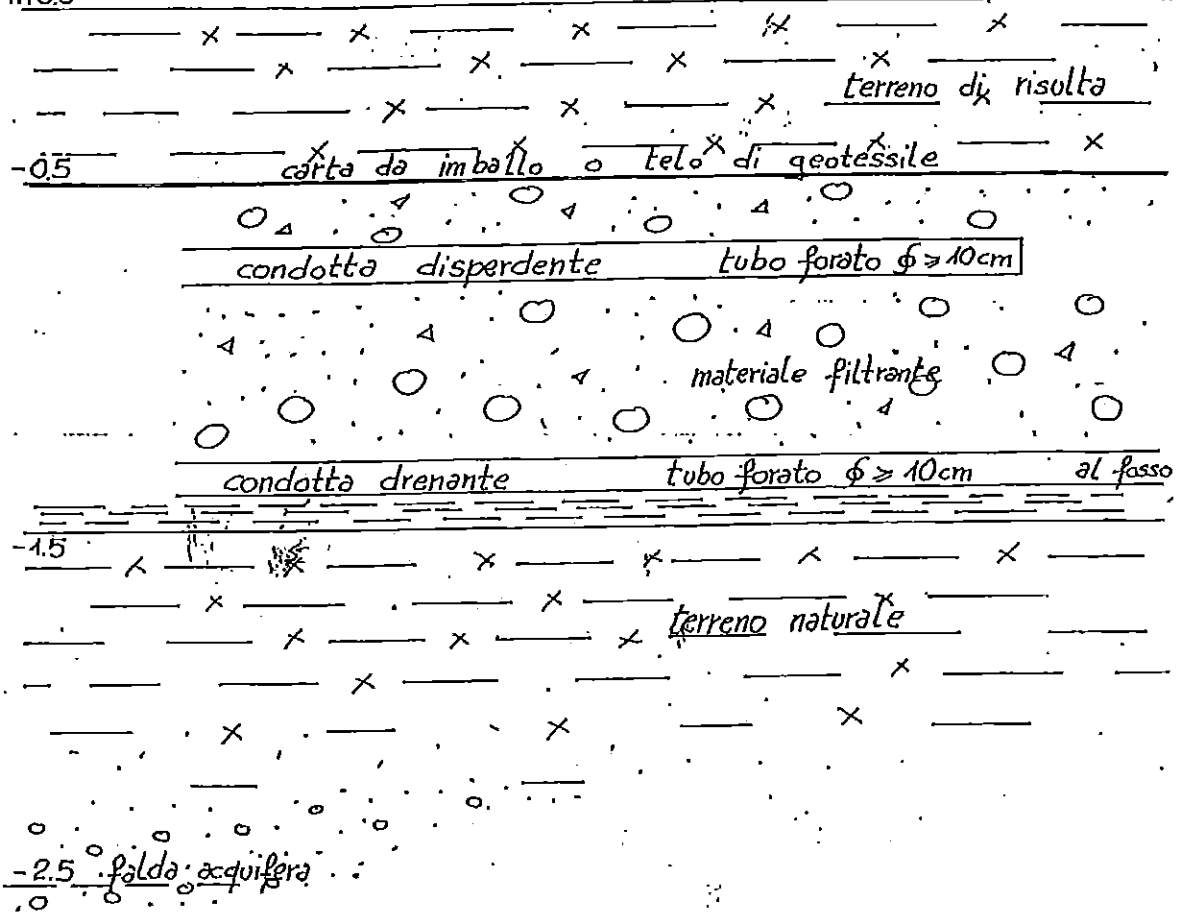 terreno di risulta
-0.5 carta da imballo o telo di geotessile
condotta disperdente tubo forato ϕ ⩾ 10cm
materiale filtrante
condotta drenante tubo forato ϕ ⩾ 10cm al fosso
-1.5
terreno naturale
-2.5 falda acquifera